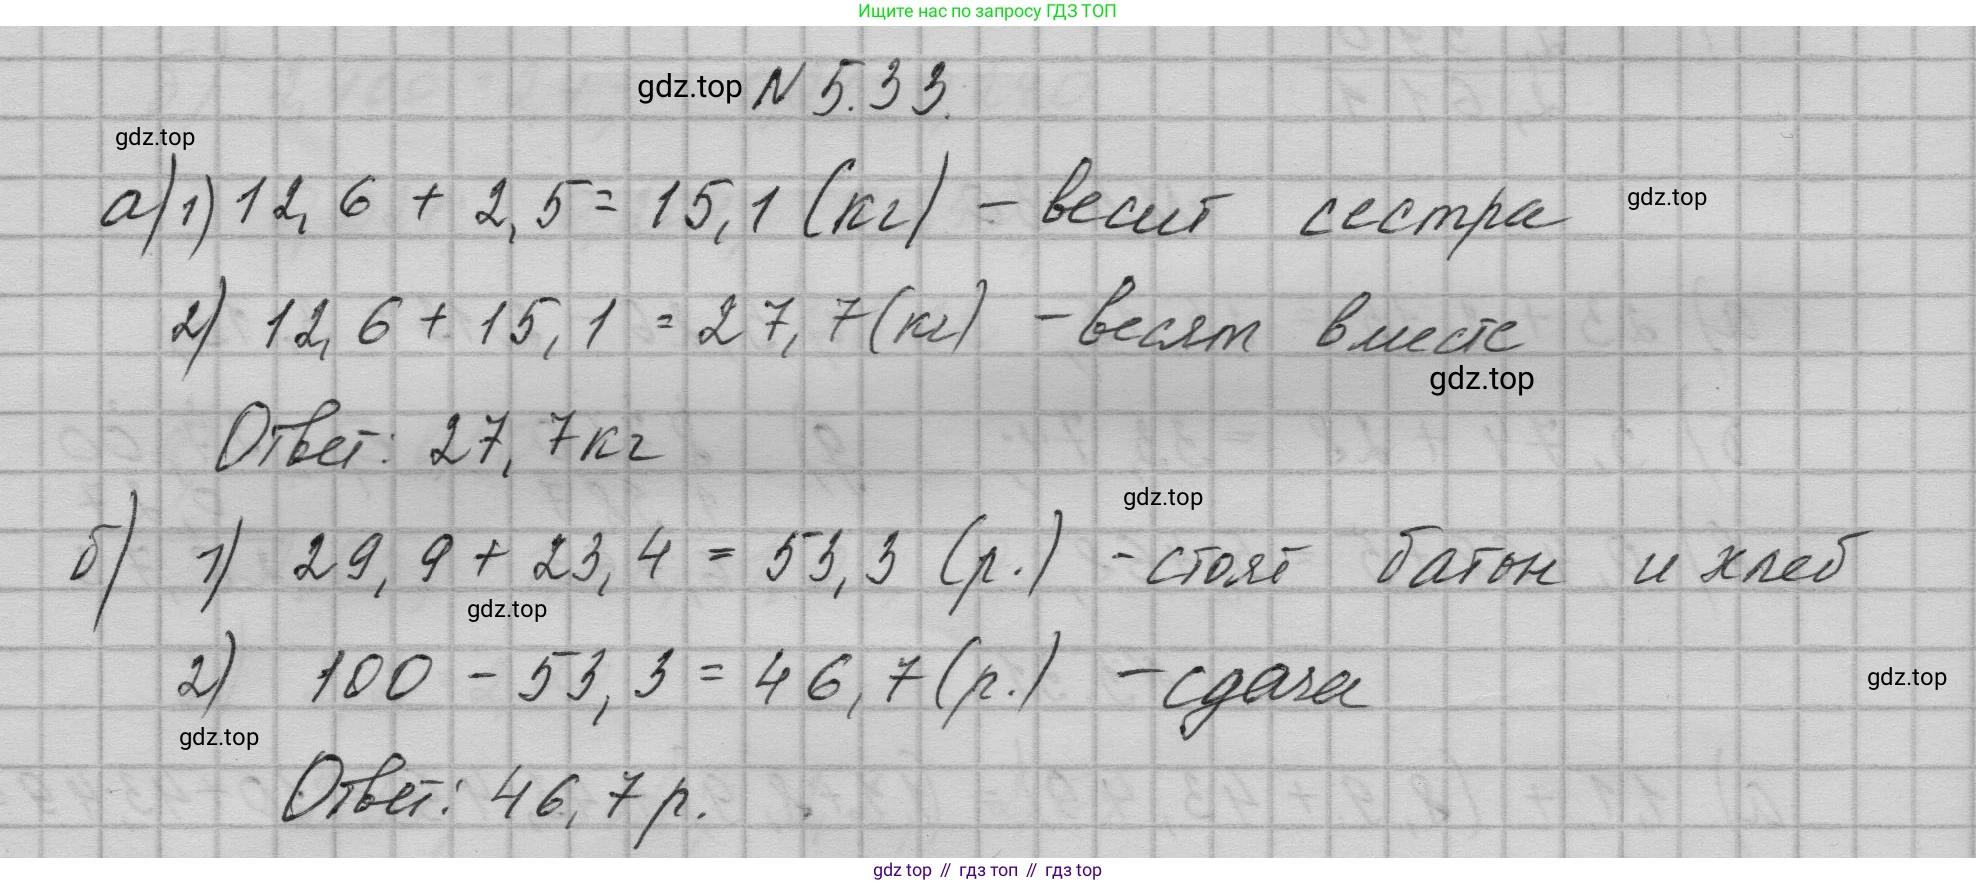 Ищите нас по запросу ГДЗ ТОП
gdz.top N 5.33.
gdz.top
а) 1) 12,6 + 2,5 = 15,1 (кг) - весит сестра
gdz.top
2) 12,6 + 15,1 = 27,7 (кг) - весят вместе
gdz.top
Ответ: 27,7 кг
gdz.top
б) 1) 29,9 + 23,4 = 53,3 (р.) - стоят батон и хлеб
gdz.top
2) 100 - 53,3 = 46,7 (р.) - сдача
gdz.top
gdz.top
Ответ: 46,7 р.
gdz top // гдз топ // гдз top